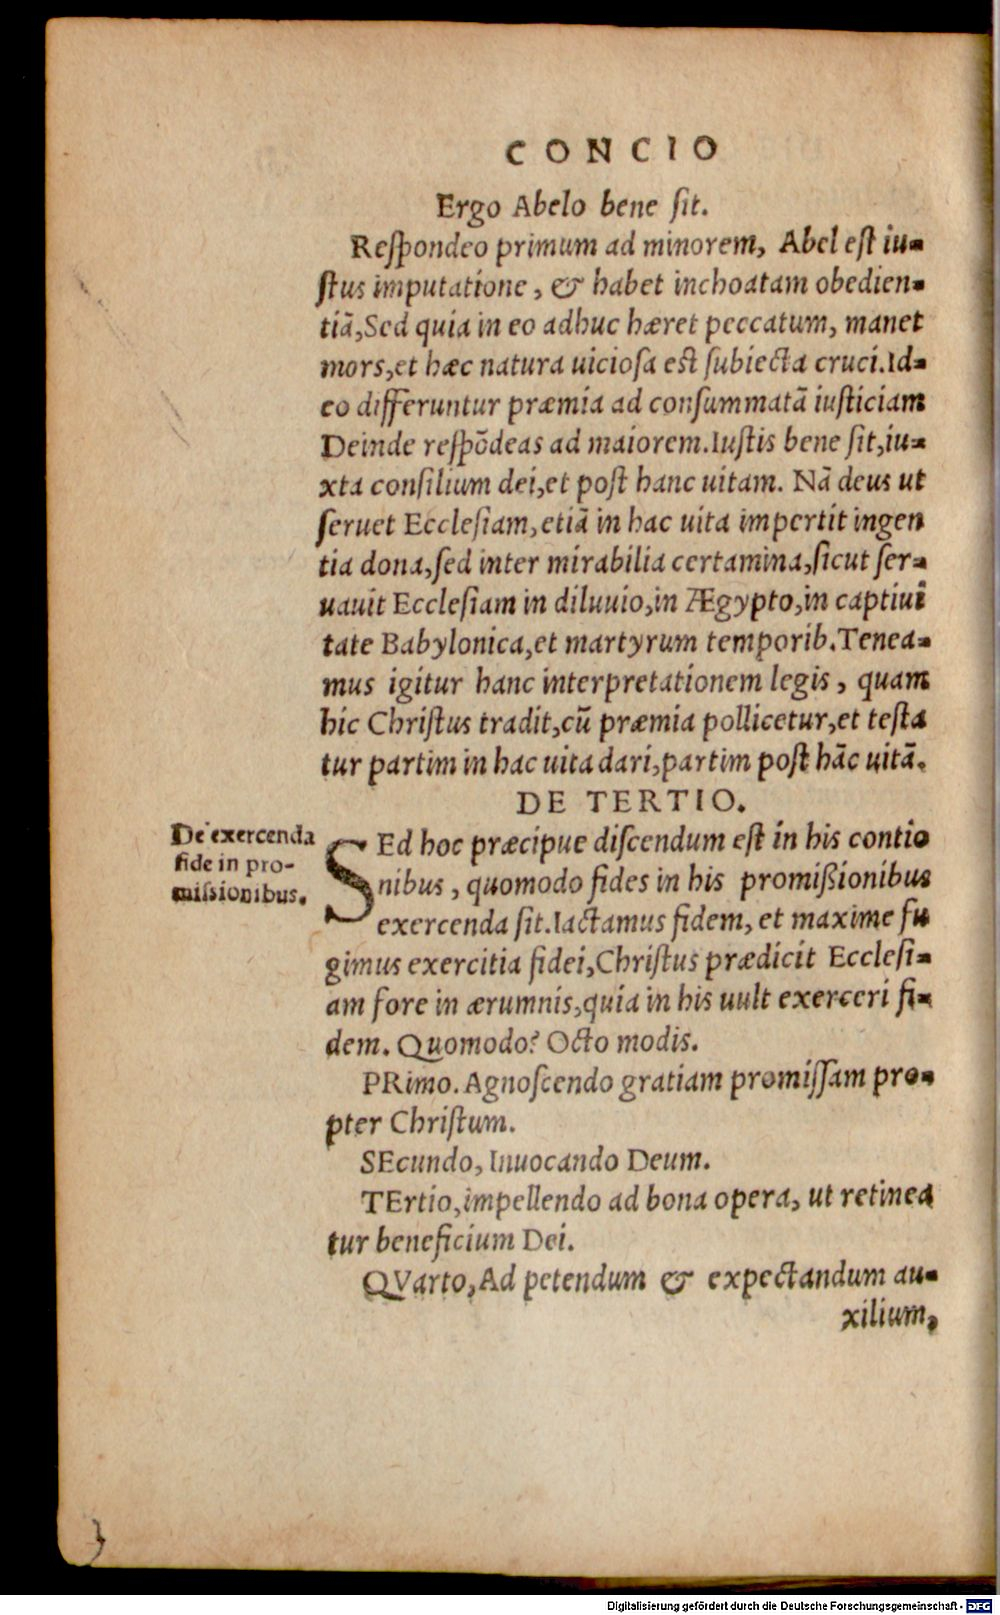 CONCIO
Ergo Abelo bene sit.
Respondeo primum ad minorem, Abel est iu-
stus imputatione, & habet inchoatam obedien-
tiã,Sed quia in eo adhuc hæret peccatum, manet
mors,et hæc natura uiciosa est subiecta cruci.Id-
eo differuntur præmia ad consummatã iusticiam
Deinde respõdeas ad maiorem.Iustis bene sit,iu-
xta consilium dei,et post hanc uitam. Nã deus ut
seruet Ecclesiam,etiã in hac uita impertit ingen
tia dona,sed inter mirabilia certamina,sicut ser-
uauit Ecclesiam in diluuio,in Ægypto,in captiui
tate Babylonica,et martyrum temporib.Tenea-
mus igitur hanc interpretationem legis, quam
hic Christus tradit,cũ præmia pollicetur,et testa
tur partim in hac uita dari,partim post hãc uitã.
DE TERTIO.
De exercenda
fide in pro-
missionibus.
SEd hoc præcipue discendum est in his contio
nibus, quomodo fides in his promißionibus
exercenda sit.Iactamus fidem, et maxime fu
gimus exercitia fidei,Christus prædicit Ecclesi-
am fore in ærumnis,quia in his uult exerceri fi-
dem. Quomodo? Octo modis.
PRimo. Agnoscendo gratiam promissam pro-
pter Christum.
SEcundo, Inuocando Deum.
TErtio,impellendo ad bona opera, ut retinea
tur beneficium Dei.
QVarto,Ad petendum & expectandum au-
xilium,
Digitalisierung gefördert durch die Deutsche Forschungsgemeinschaft - DFG